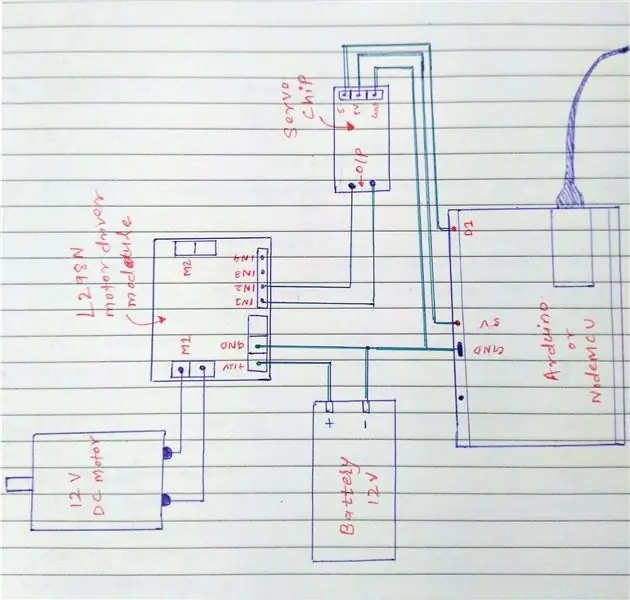 Servo
chip
S
5V
GND
O/P
L298N
motor driver
module
M2
IN4
IN3
IN2
IN1
M1
GND
+12V
12V
DC Motor
+
-
Battery
12V
D1
5V
GND
Arduino
or
NodeMCU